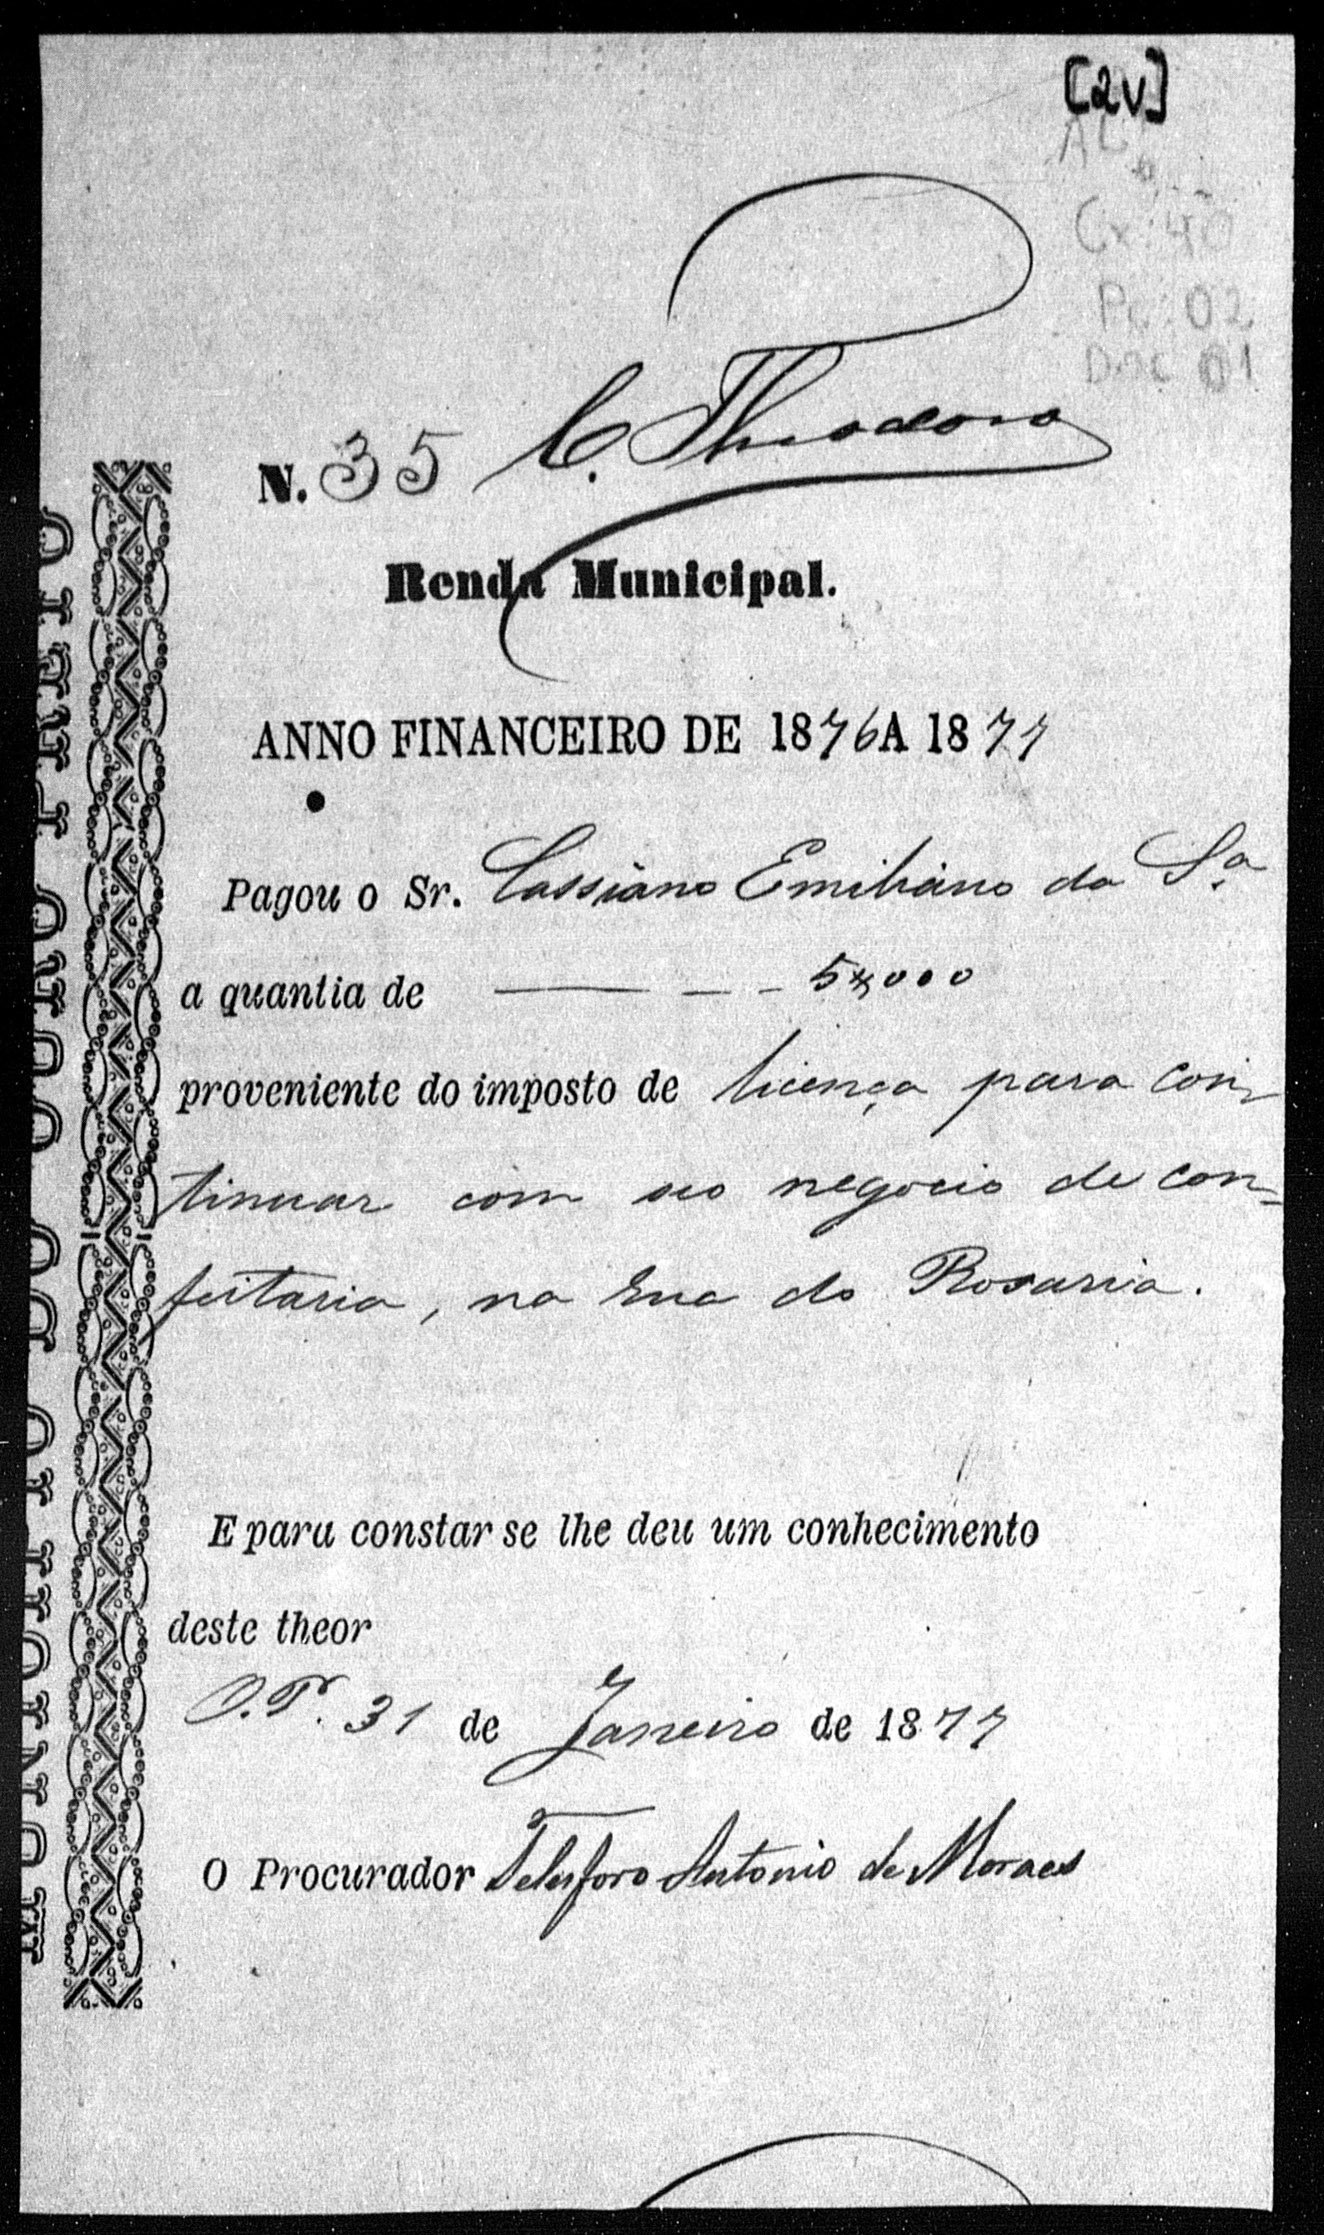 [2v]
Cx: 40
Pc: 02
Doc 01
N. 35 C. Theodoro
Renda Municipal.
ANNO FINANCEIRO DE 1876 A 1877
Pagou o Sr. Cassiano Emiliano da Sa.
a quantia de — — — 5$000
proveniente do imposto de licença para con-
tinuar com seo negocio de con=
feitaria, na rua do Rosario.
E para constar se lhe deu um conhecimento
deste theor
O. P. 31 de Janeiro de 1877
O Procurador Telesforo Antonio de Moraes